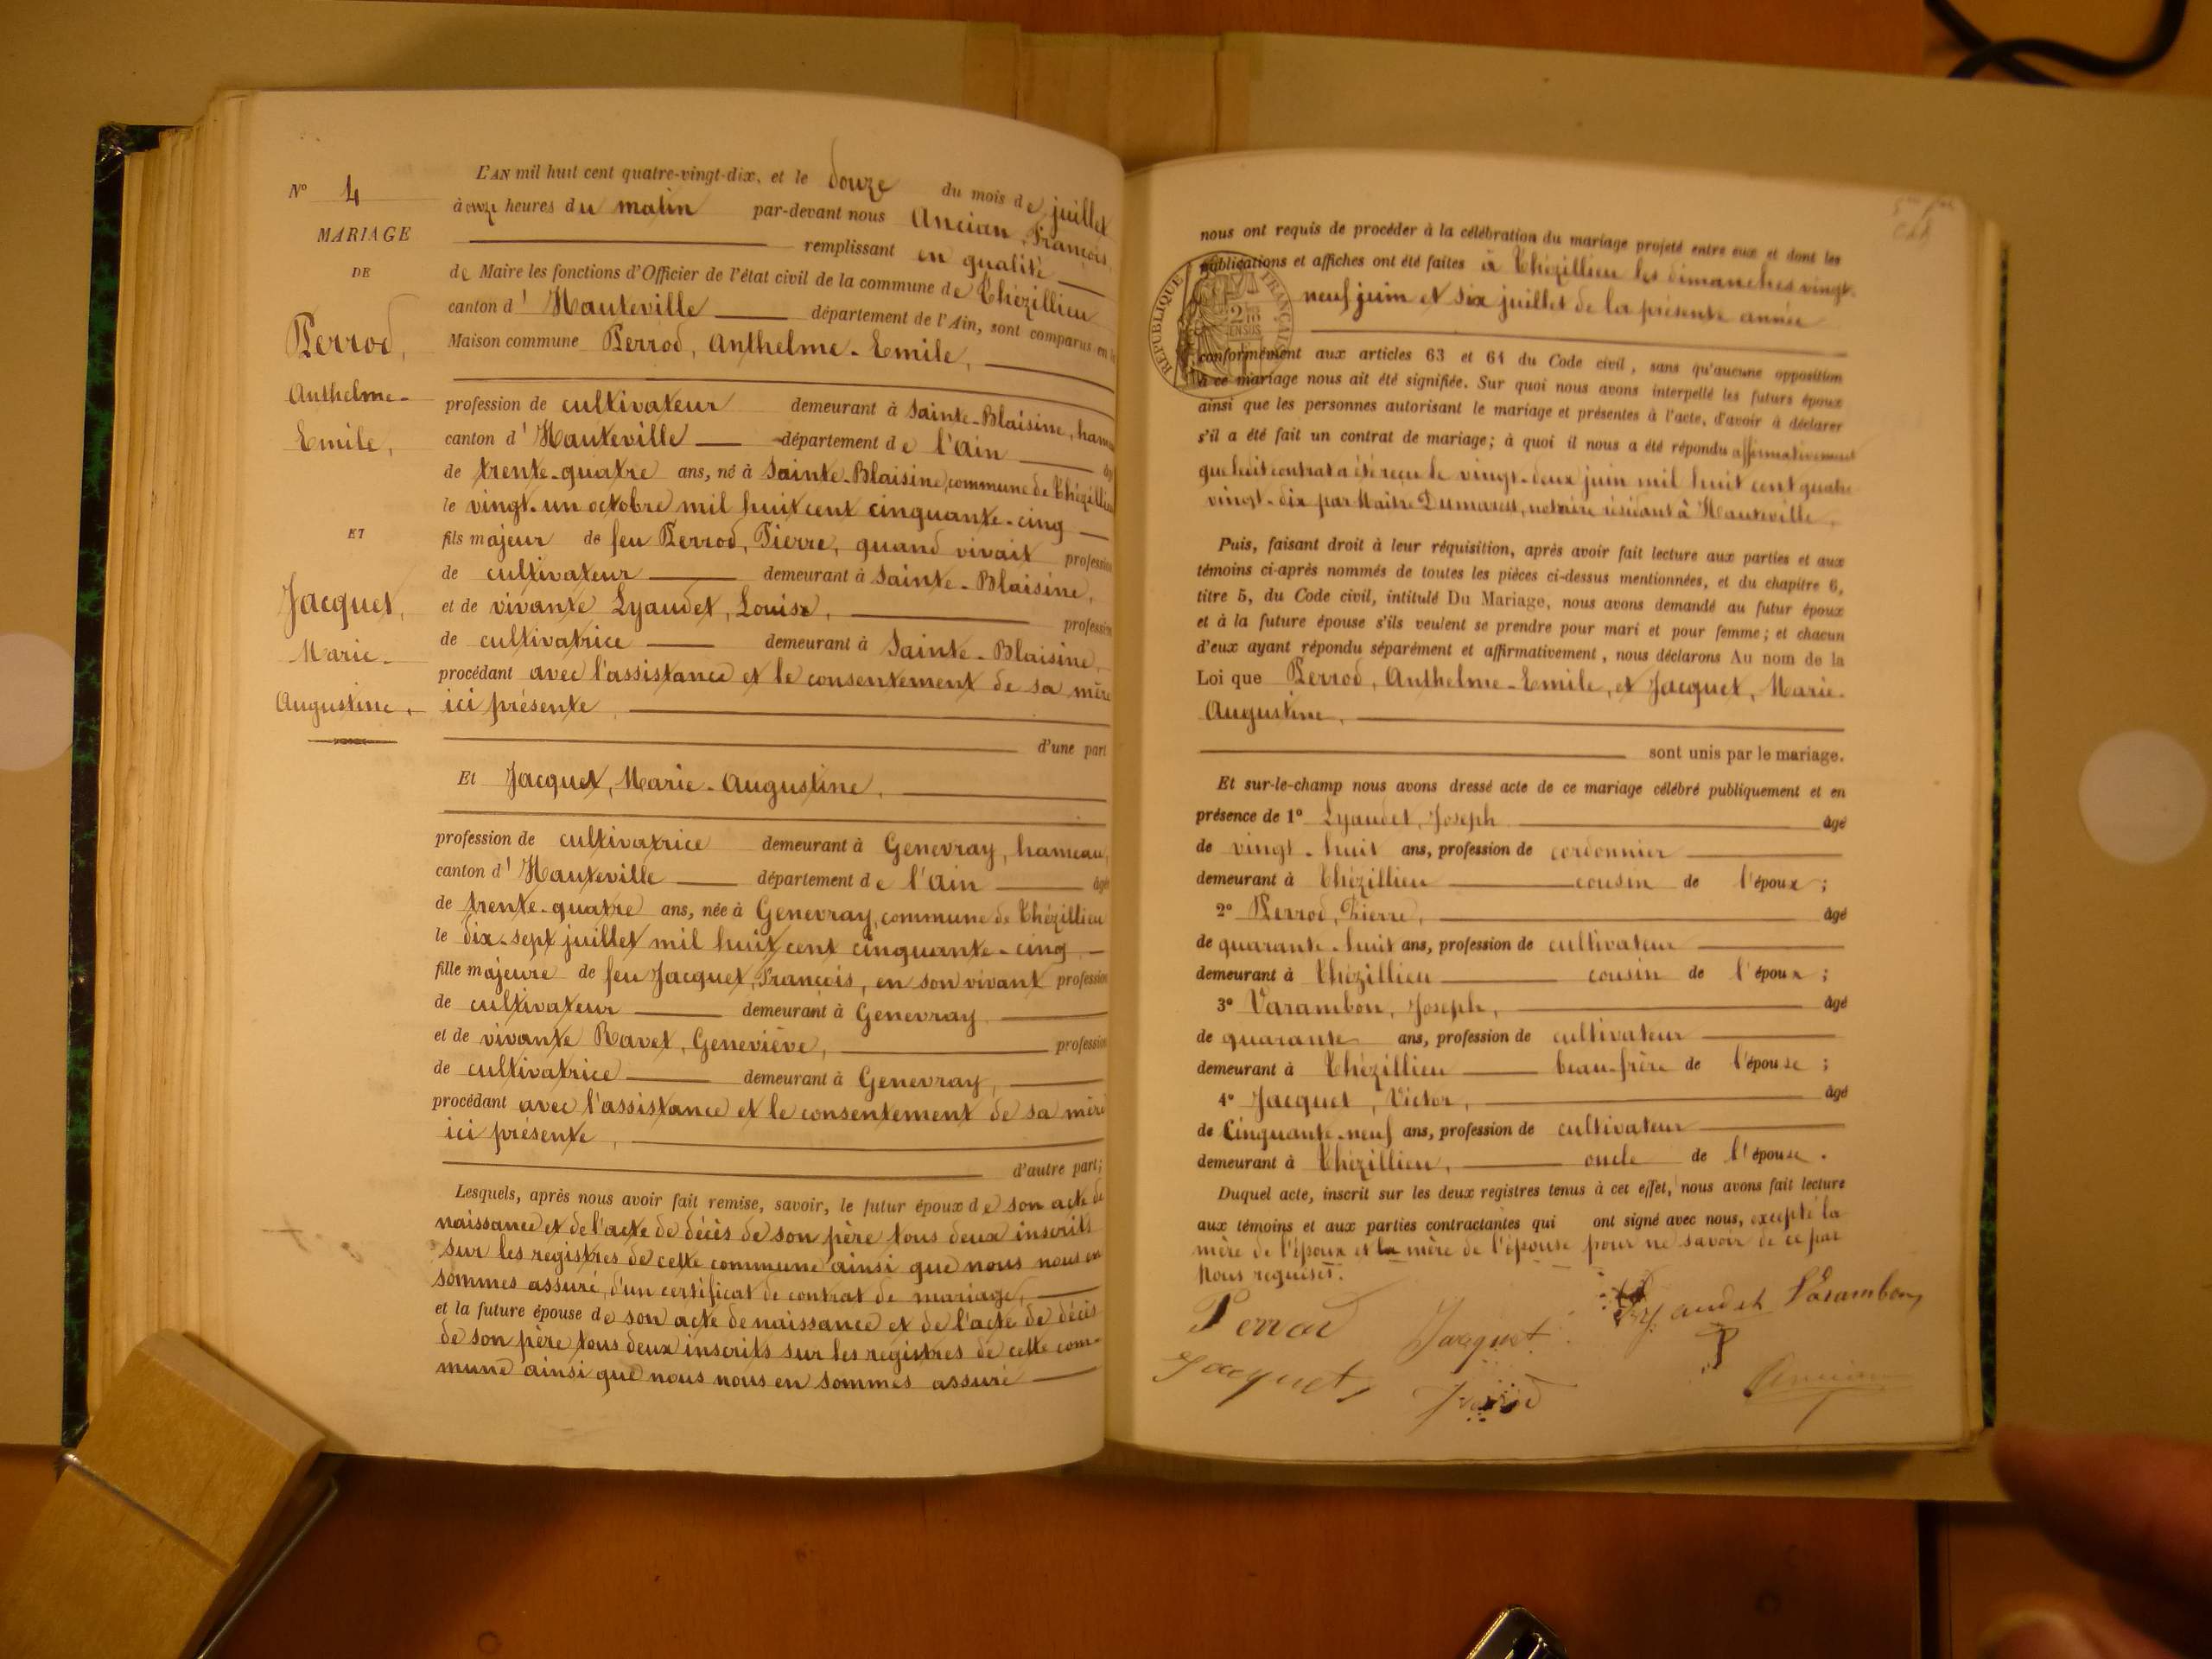 N° 4
MARIAGE
DE
Perrod,
Anthelme-
Emile,
ET
Jacquet,
Marie-
Augustine,
L'AN mil huit cent quatre-vingt-dix, et le douze du mois de juillet
à onze heures du matin par-devant nous Ancian, François,
remplissant en qualité
de Maire les fonctions d'Officier de l'état civil de la commune de Thézillieu
canton d'Hauteville département de l'Ain, sont comparus en la
Maison commune Perrod, Anthelme-Emile,
profession de cultivateur demeurant à Sainte-Blaisine, hameau
canton d'Hauteville département de l'Ain âgé
de trente-quatre ans, né à Sainte-Blaisine, commune de Thézillieu
le vingt-un octobre mil huit cent cinquante-cinq
fils majeur de feu Perrod, Pierre, quand vivait profession
de cultivateur demeurant à Sainte-Blaisine,
et de vivante Lyaudet, Louise, profession
de cultivatrice demeurant à Sainte-Blaisine,
procédant avec l'assistance et le consentement de sa mère
ici présente,
d'une part
Et Jacquet, Marie-Augustine,
profession de cultivatrice demeurant à Genevray, hameau,
canton d'Hauteville département de l'Ain âgée
de trente-quatre ans, née à Genevray, commune de Thézillieu
le dix-sept juillet mil huit cent cinquante-cinq
fille majeure de feu Jacquet, François, en son vivant profession
de cultivateur demeurant à Genevray
et de vivante Ravet, Geneviève, profession
de cultivatrice demeurant à Genevray,
procédant avec l'assistance et le consentement de sa mère
ici présente,
d'autre part;
Lesquels, après nous avoir fait remise, savoir, le futur époux de son acte de
naissance et de l'acte de décès de son père tous deux inscrits
sur les registres de cette commune ainsi que nous nous en
sommes assuré, d'un certificat de contrat de mariage,
et la future épouse de son acte de naissance et de l'acte de décès
de son père tous deux inscrits sur les registres de cette com-
mune ainsi que nous nous en sommes assuré
nous ont requis de procéder à la célébration du mariage projeté entre eux et dont les
publications et affiches ont été faites à Thézillieu les dimanches vingt-
neuf juin et six juillet de la présente année
RÉPUBLIQUE FRANÇAISE
conformément aux articles 63 et 64 du Code civil, sans qu'aucune opposition
à ce mariage nous ait été signifiée. Sur quoi nous avons interpellé les futurs époux
ainsi que les personnes autorisant le mariage et présentes à l'acte, d'avoir à déclarer
s'il a été fait un contrat de mariage; à quoi il nous a été répondu affirmativement
que ledit contrat a été reçu le vingt-deux juin mil huit cent quatre
vingt-dix par Maître Dumarest, notaire résidant à Hauteville.
Puis, faisant droit à leur réquisition, après avoir fait lecture aux parties et aux
témoins ci-après nommés de toutes les pièces ci-dessus mentionnées, et du chapitre 6,
titre 5, du Code civil, intitulé Du Mariage, nous avons demandé au futur époux
et à la future épouse s'ils veulent se prendre pour mari et pour femme; et chacun
d'eux ayant répondu séparément et affirmativement, nous déclarons Au nom de la
Loi que Perrod, Anthelme-Emile, et Jacquet, Marie-
Augustine,
sont unis par le mariage.
Et sur-le-champ nous avons dressé acte de ce mariage célébré publiquement et en
présence de 1° Lyaudet, Joseph âgé
de vingt-huit ans, profession de cordonnier
demeurant à Thézillieu cousin de l'époux;
2° Perrod, Pierre, âgé
de quarante-huit ans, profession de cultivateur
demeurant à Thézillieu cousin de l'époux;
3° Varambon, Joseph, âgé
de quarante ans, profession de cultivateur
demeurant à Thézillieu beau-frère de l'épouse;
4° Jacquet, Victor, âgé
de Cinquante-neuf ans, profession de cultivateur
demeurant à Thézillieu, oncle de l'épouse.
Duquel acte, inscrit sur les deux registres tenus à cet effet, nous avons fait lecture
aux témoins et aux parties contractantes qui ont signé avec nous, excepté la
mère de l'époux et la mère de l'épouse pour ne savoir de ce par
Nous requises.
Perrod Jacquet Lyaudet Varambon
Jacquet